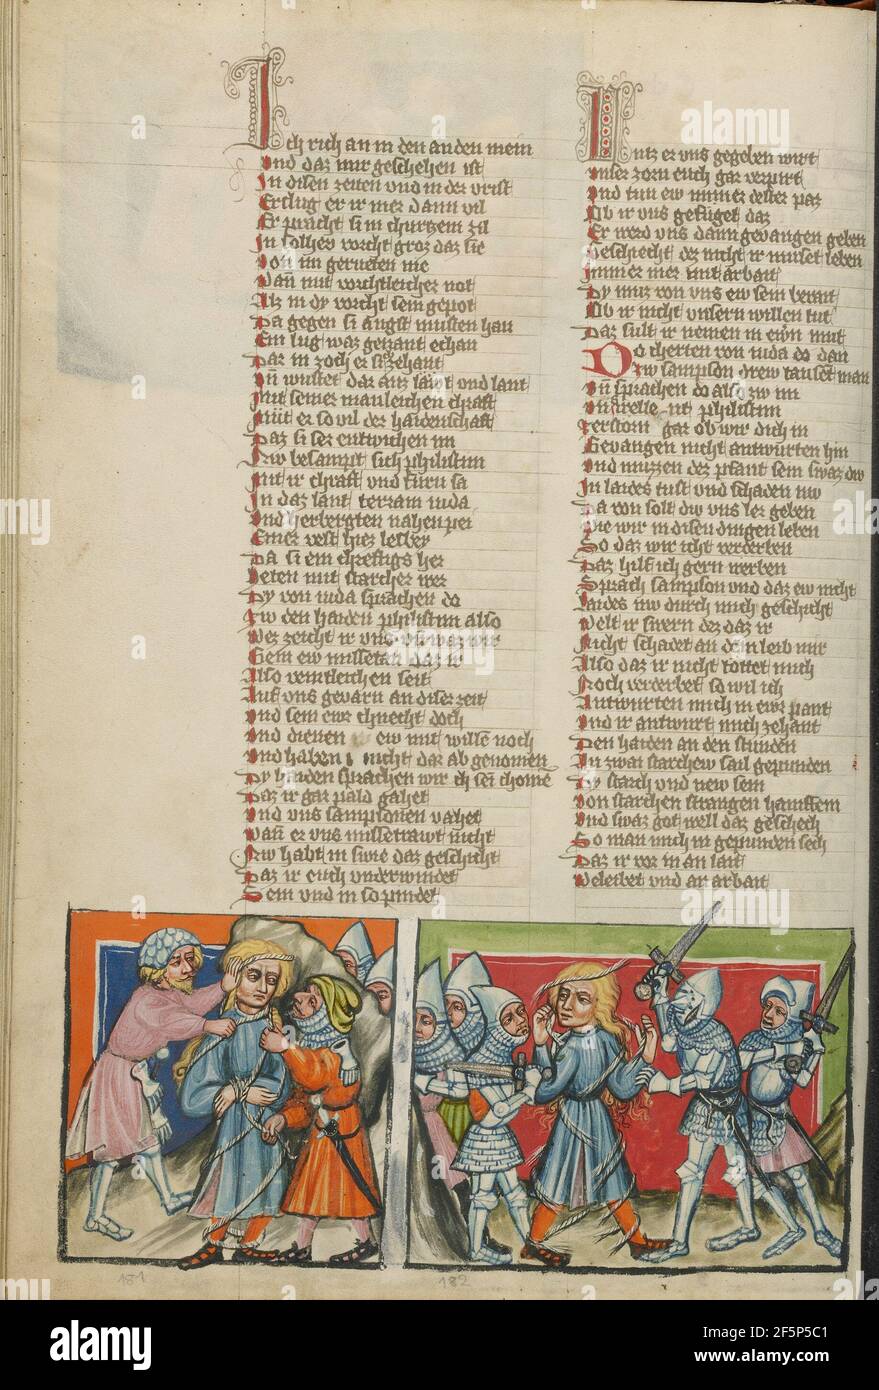 Ich rich an in den anden mein
Und daz mir geschehen ist
In disen zeiten und in der vrist
Erslug er ir mer dann vil
Er pracht si in churtzem zil
In solhew vorcht groz daz sie
Von im gerueten nie
Dann mit vorchtleicher not
Alz in dy vorcht sein gepot
Da gegen si angst musten han
Ein lug waz genant echan
Dar in zoch er si zehant
Und wustet dar auz läwt und lant
Mit seiner manleichen chraft
Mit er so vil der haidenschaft
Daz si sez entwichen im
Nw besampt sich philistim
Mit ir chraft und furn sa
In daz lant terram iuda
Und herbergten nahen pei
Einer velt hiez lechey
Da si ein chreftigs her
Heten mit starcher wer
Dy von iuda sprachen do
Zw den haiden philistim also
Wez zeicht ir uns und waz wir
Gein ew missetan daz ir
Also veintleichen seit
Auf uns gevarn an diser zeit
Und sein ewr chnecht doch
Und dienen ew mit willen noch
Und haben nicht dar ab genomen
Dy haiden sprachen wir sei chomen
Daz ir gar pald gahet
Und uns sampsonen vahet
Wann er uns missetrawt nicht
Nw habt in swie daz geschicht
Daz ir euch underwindet
Sein und in so pindet
Untz er uns gegeben wirt
Unser zorn euch gar verpirt
Und tun ew immer dester paz
Ob ir uns gefüget daz
Er werd uns dann gevangen geben
Geschecht dez nicht ir muset leben
Immer mer mit arbait
Dy muz von uns ew sein berait
Ob ir nicht unsern willen tut
Daz sult ir nemen in ewrn mut
Do cherten von iuda do dan
Zw sampson drew tauset man
Und sprachen do also zw im
Und welle nt philistim
Zerstorn gar ob wir dich in
Gevangen nicht antwurten hin
Und muzzen dez pfant sein swaz dw
In laides tust und schaden nw
Da von solt dw uns ler geben
Wie wir in disen dingen leben
So daz wir icht verderben
Daz hilf ich gern werben
Sprach sampson und daz ew nicht
Laides nw durch mich geschicht
Welt ir swern dez daz ir
Nicht schadet an dem leib mir
Also daz ir nicht tottet mich
Noch verderbet so wil ich
Antwurten mich in ewr pant
Und ir antwurt mich zehant
Den haiden an den stunden
In zwai starchew sail gepunden
Dy starch und new sein
Von starchen strangen hanffein
Und swaz got well daz geschech
So man mich in gepunden sech
Daz ir vor in an lait
Beleibet und ar arbait
181
182
alamy
Image ID: 2F5P5C1
www.alamy.com